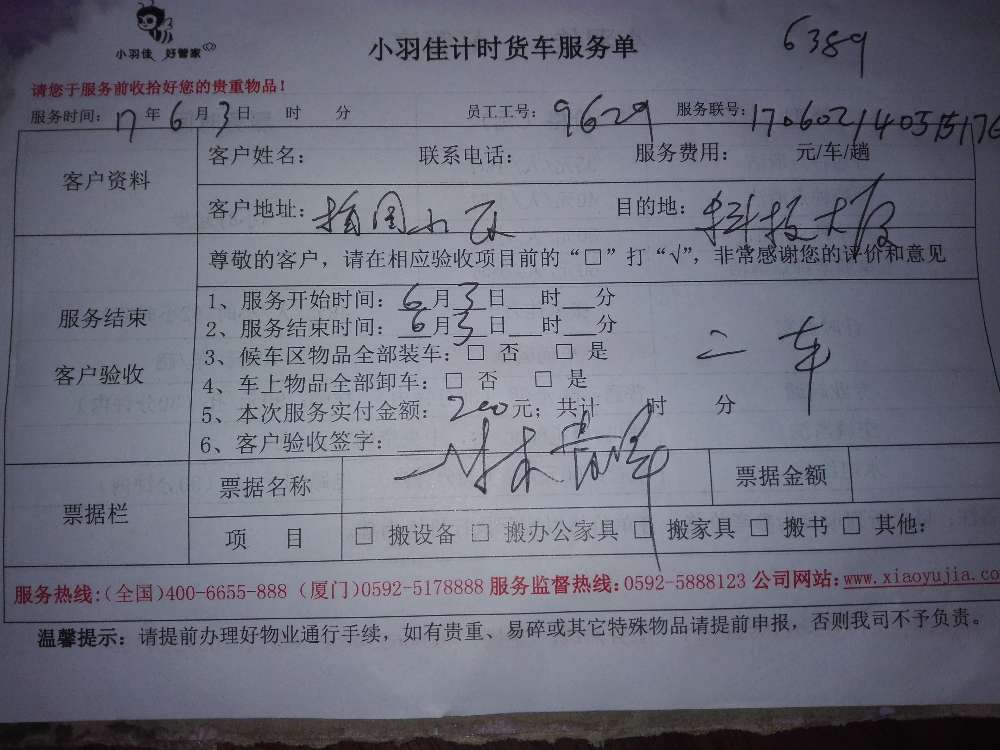 小羽佳 好管家
小羽佳计时货车服务单 6389
请您于服务前收拾好您的贵重物品！
服务时间：17年6月3日 时 分 员工工号：9629 服务联号：
客户资料 客户姓名： 联系电话： 服务费用： 元/车/趟
客户地址： 目的地：科技大厦
尊敬的客户，请在相应验收项目前的“□”打“√”，非常感谢您的评价和意见
服务结束
客户验收
1、服务开始时间：6月3日 时 分
2、服务结束时间：6月3日 时 分
3、候车区物品全部装车：□ 否 □ 是 二车
4、车上物品全部卸车：□ 否 □ 是
5、本次服务实付金额：200元；共计 时 分
6、客户验收签字：
票据栏 票据名称 票据金额
项 目 □ 搬设备 □ 搬办公家具 □ 搬家具 □ 搬书 □ 其他：
服务热线:(全国)400-6655-888 (厦门)0592-5178888 服务监督热线:0592-5888123 公司网站:www.xiaoyujia.co
温馨提示：请提前办理好物业通行手续，如有贵重、易碎或其它特殊物品请提前申报，否则我司不予负责。